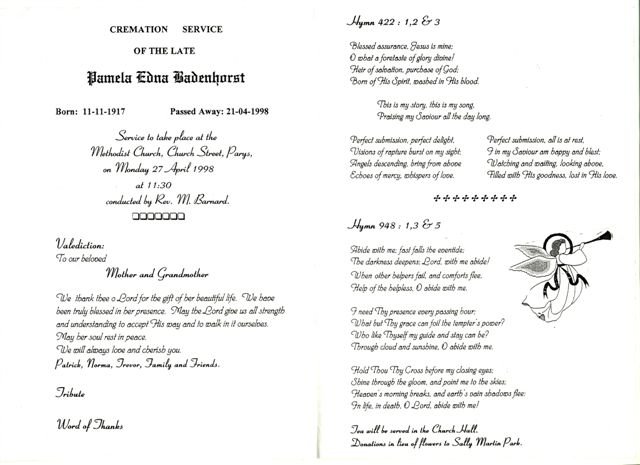 CREMATION SERVICE
OF THE LATE
Pamela Edna Badenhorst
Born: 11-11-1917 Passed Away: 21-04-1998
Service to take place at the
Methodist Church, Church Street, Parys,
on Monday 27 April 1998
at 11:30
conducted by Rev. M. Barnard.
Valediction:
To our beloved
Mother and Grandmother
We thank thee o Lord for the gift of her beautiful life. We have
been truly blessed in her presence. May the Lord give us all strength
and understanding to accept His way and to walk in it ourselves.
May her soul rest in peace.
We will always love and cherish you.
Patrick, Norma, Trevor, Family and Friends.
Tribute
Word of Thanks
Hymn 422 : 1,2 & 3
Blessed assurance, Jesus is mine;
O what a foretaste of glory divine!
Heir of salvation, purchase of God;
Born of His Spirit, washed in His blood.
This is my story, this is my song,
Praising my Saviour all the day long.
Perfect submission, perfect delight,
Visions of rapture burst on my sight;
Angels descending, bring from above
Echoes of mercy, whispers of love.
Perfect submission, all is at rest,
I in my Saviour am happy and blest;
Watching and waiting, looking above,
Filled with His goodness, lost in His love.
Hymn 948 : 1,3 & 5
Abide with me; fast falls the eventide;
The darkness deepens; Lord, with me abide!
When other helpers fail, and comforts flee,
Help of the helpless, O abide with me.
I need Thy presence every passing hour;
What but Thy grace can foil the tempter's power?
Who like Thyself my guide and stay can be?
Through cloud and sunshine, O abide with me.
Hold Thou Thy Cross before my closing eyes;
Shine through the gloom, and point me to the skies;
Heaven's morning breaks, and earth's vain shadows flee:
In life, in death, O Lord, abide with me!
Tea will be served in the Church Hall.
Donations in lieu of flowers to Sally Martin Park.